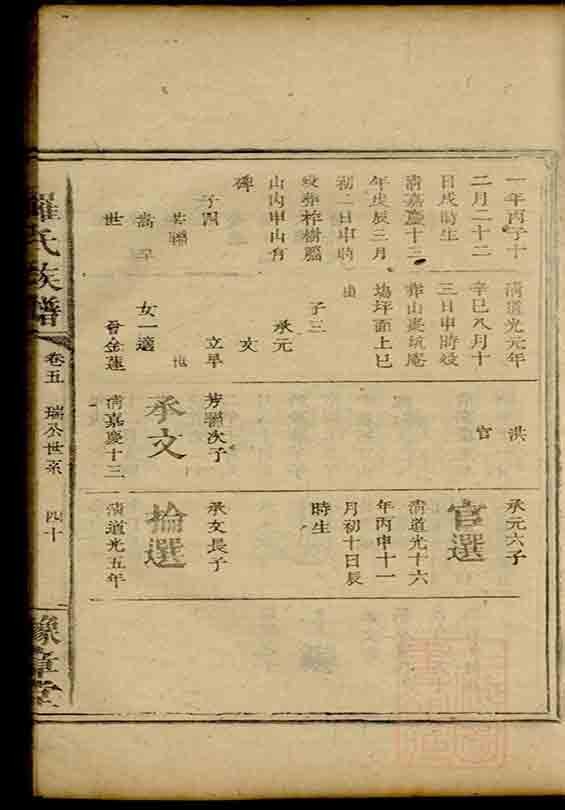 一年丙子十
二月二十二
日戌時生
淸嘉慶十三
年戊辰三月
初二日申時
歿葬柞樹腦
山內申山有
碑
子四
芳聯
嵩早
世
淸道光元年
辛巳八月十
三日申時歿
葬山棗坑庵
塲坪面上巳
子三
承元
文
立早
世
女一適
曾金蓮
洪
官
芳聯次子
承文
淸嘉慶十三
承元六子
官選
淸道光十六
年丙申十一
月初十日辰
時生
承文長子
掄選
淸道光五年
羅氏族譜
卷五
瑞公世系
四十
豫章堂